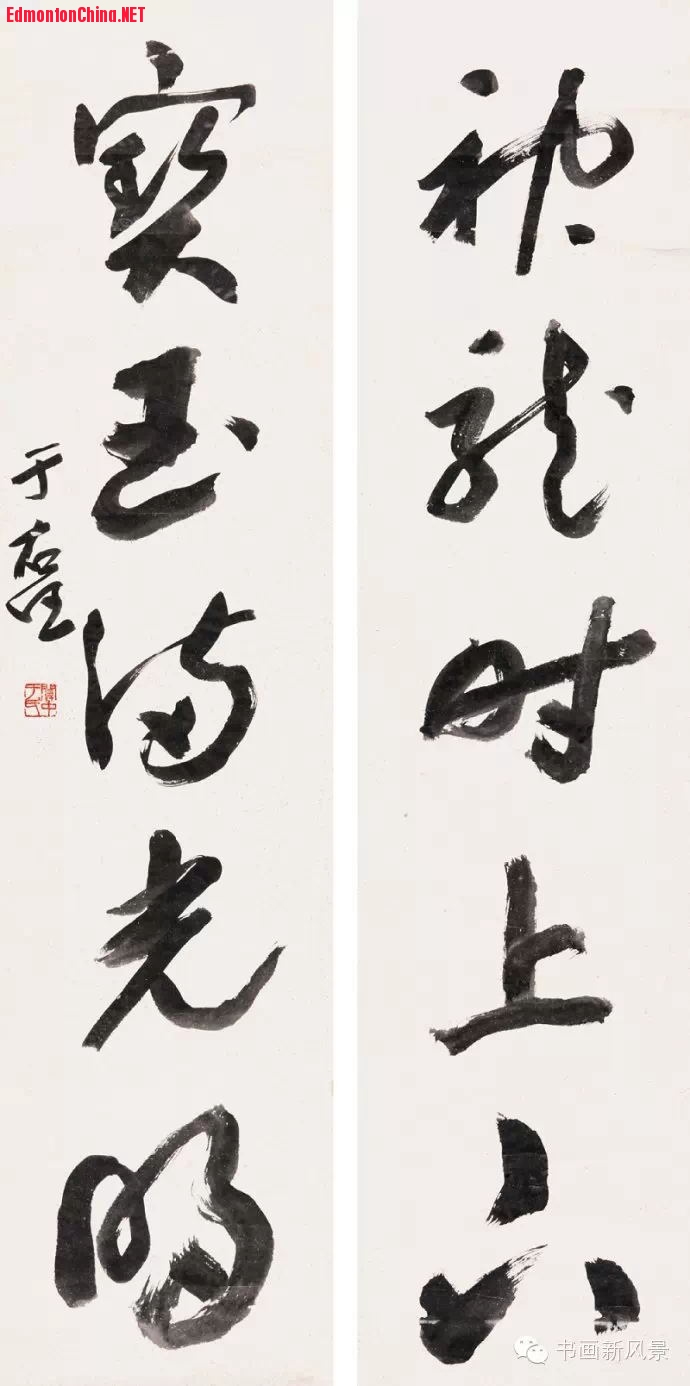 EdmontonChina.NET
神龍時上下
寶玉滿光明
于右任
關中于氏
书画新风景